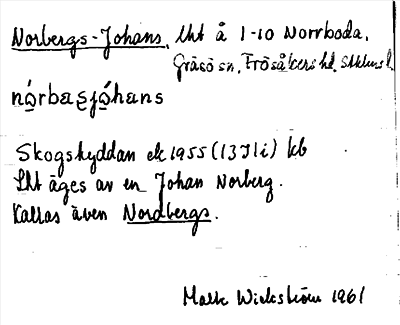 Norbergs-Johans, lht å 1-10 Norrboda,
Gräsö sn, Frösåkers hd, Sthlms l.
nó̲rbaʂjó̲hans
Skogshyddan ek 1955 (13I1i) kb
Lht äges av en Johan Norberg.
Kallas även Nordbergs.
Malte Wickström 1961